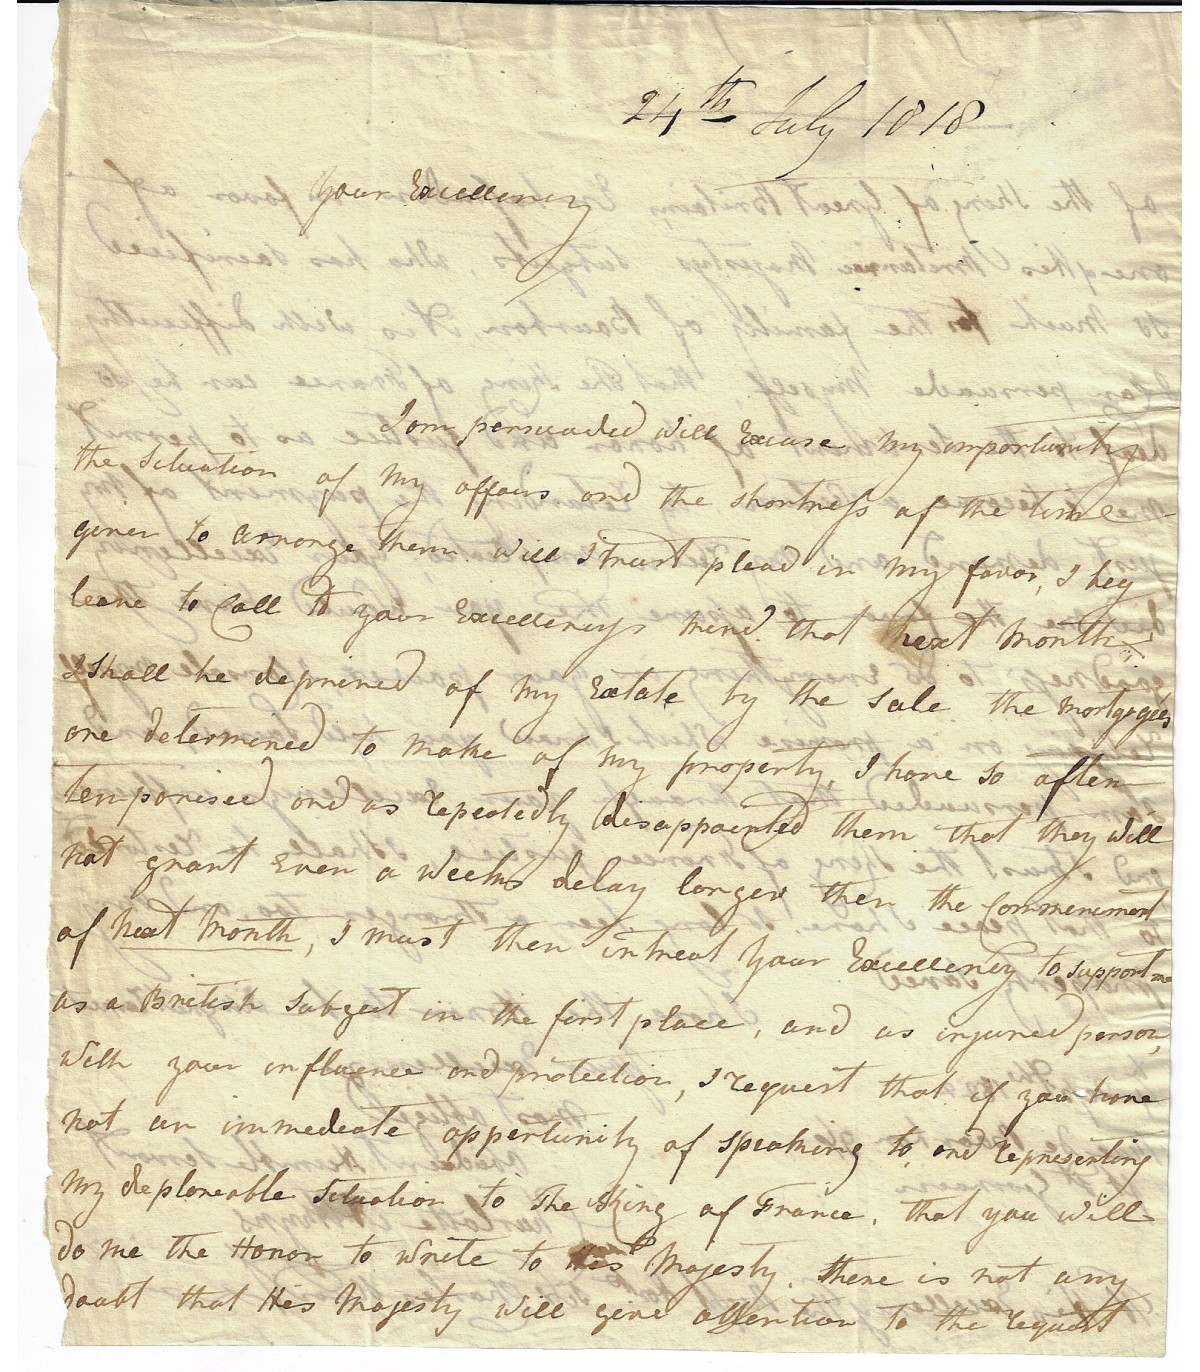 24th July 1818
Your Excellency
I am persuaded will Excuse my importunity
the situation of my affairs and the shortness of the time
given to arrange them will I trust plead in my favor, I beg
leave to Call to your Excellencys mind that next month
I shall be deprived of my Estate by the sale the mortgagees
are determined to make of my property, I have so often
temporised and as repeatedly disappointed them that they will
not grant Even a weeks delay longer then the Commencement
of next month, I must then intreat your Excellency to support me
as a British subject in the first place, and as injured person,
with your influence and protection, I request that if you have
not an immediate oppertunity of speaking to, and representing
my deplorable situation to The King of France, that you will
do me the Honor to write to His Majesty. there is not any
doubt that His Majesty will give attention to the request